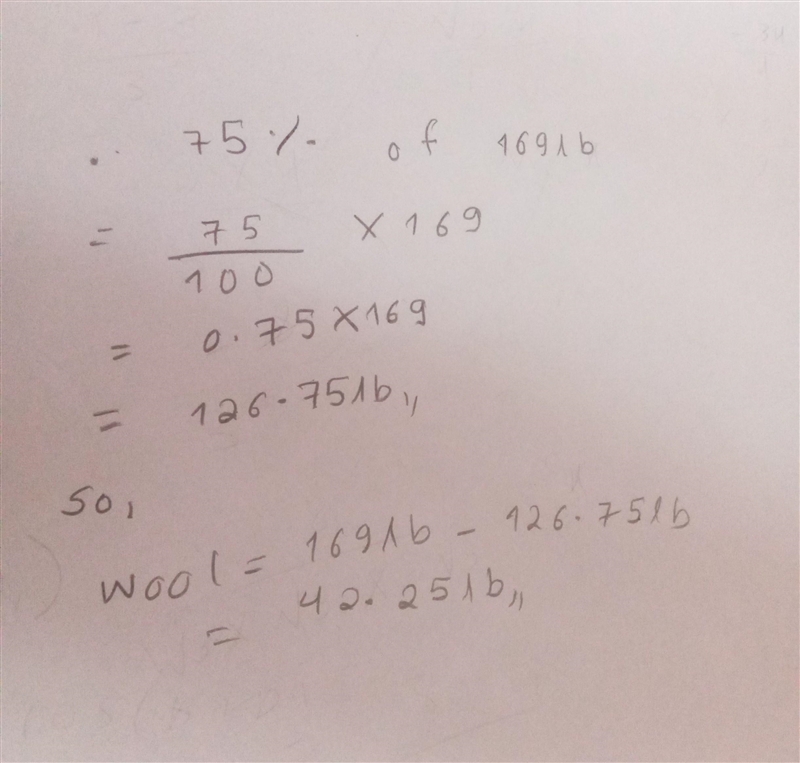 ∴ 75% of 169lb
= 75/100 × 169
= 0.75×169
= 126.75lb,,
So,
Wool = 169lb - 126.75lb
= 42.25lb,,